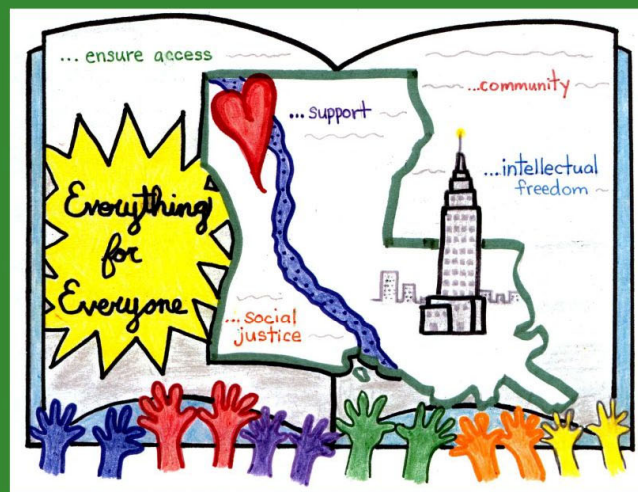 ... ensure access
...community
...support
...intellectual
freedom
Everything
for
Everyone
...social
justice